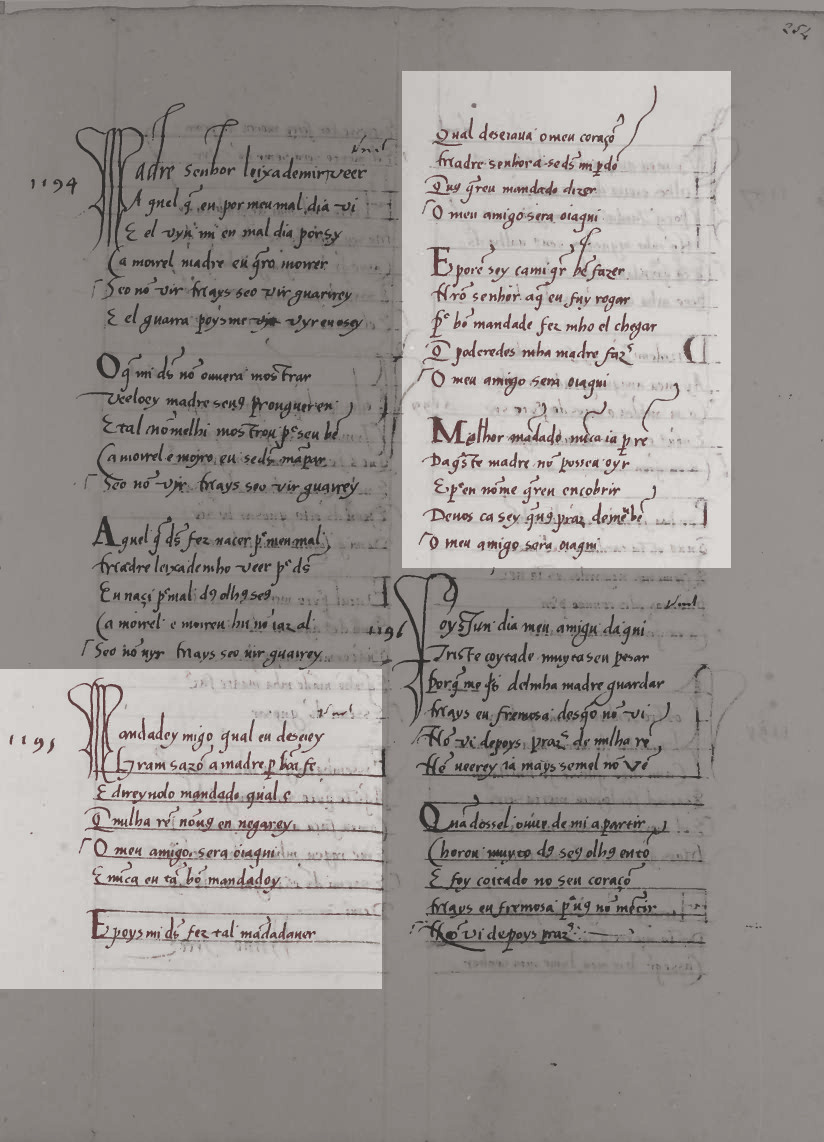 254
Vnal
1194
Madre senhor leixademir veer
Aquel q̄ eu por meu mal dia vi
E el vyu mi en mal dia por sy
Ca moirel madre eu q̄ro moirer
Seo nō vir mays seo vir guarirey
E el guarra poys me vyr eu o sey
O q̄ mi ds̄ nō ouuera mostrar
Veeloey madre seu9 prouguer en
E tal nō melhi mostrou pᵉ seu bē
Ca moirel e moiro eu seds̄ māpar
Seo nō vir mays seo vir guarrey
Aquel q̄ ds̄ fez nacer pᵉ meu mal
Madre leixademho veer pᵉ ds̄
Eu naçi pᵉ mal d9 olh9 se9
Ca moirel e moireu hu nō iaz al
Seo nō uyr mays seo uir guarrey
Vnal
1195
Mandadey migo qual eu deseiey
Gram sazō a madre p bōa fe
E direyuolo mandado qual e
Q̄ nulha rē nōu9 en negarey
O meu amigo sera oiaqui
E nūca eu tā bō mandadoy
E poys mi ds̄ fez tal mādadauer
Qual deseiaua o meu coraçō
Madre senhor a seds̄ mi pdō
Qu9 q̄reu mandado dizer
O meu amigo sera oiaqui
E porē sey cami q̄r bē fazer
Nr̄o senhor aq̄ eu fuy rogar
Pᵉ bō mandade fez mho el chegar
Q̄ poderedes mha madre faz̄
O meu amigo sera oiaqui
Melhor mādado nūca ia p re
Daq̄ste madre nō posseu oyr
E pᵉ en nōme q̄reu encobrir
Deuos ca sey q̄u9 praz demē bē
O meu amigo sera oiaqui
Vnal
1196
Poys sun dia meu amigu daqui
Triste coytade muyta seu pesar
Porq̄ me q̄s delmha madre guardar
Mays eu fremosa desq̄o nō vi
Nō vi depoys praz̄ de nulha re
Nē ueerey ia mays semel nō vē
Quādossel ouue de mi a partir
Chorou muyto d9 se9 olh9 entō
E foy coitado no seu coraçō
Mays eu fremosa pᵉ u9 nō mētir
Nō vi depoys praz̄